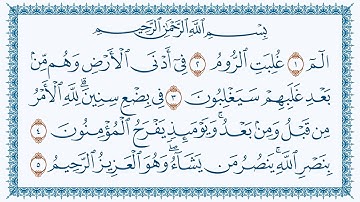 بِسْمِ اللَّهِ الرَّحْمَٰنِ الرَّحِيمِ
الٓمٓ ۝١ غُلِبَتِ ٱلرُّومُ ۝٢ فِيٓ أَدْنَى ٱلْأَرْضِ وَهُم مِّنۢ
بَعْدِ غَلَبِهِمْ سَيَغْلِبُونَ ۝٣ فِي بِضْعِ سِنِينَۗ لِلَّهِ ٱلْأَمْرُ
مِن قَبْلُ وَمِنۢ بَعْدُۚ وَيَوْمَئِذٍ يَفْرَحُ ٱلْمُؤْمِنُونَ ۝٤
بِنَصْرِ ٱللَّهِۚ يَنصُرُ مَن يَشَآءُۖ وَهُوَ ٱلْعَزِيزُ ٱلرَّحِيمُ ۝٥